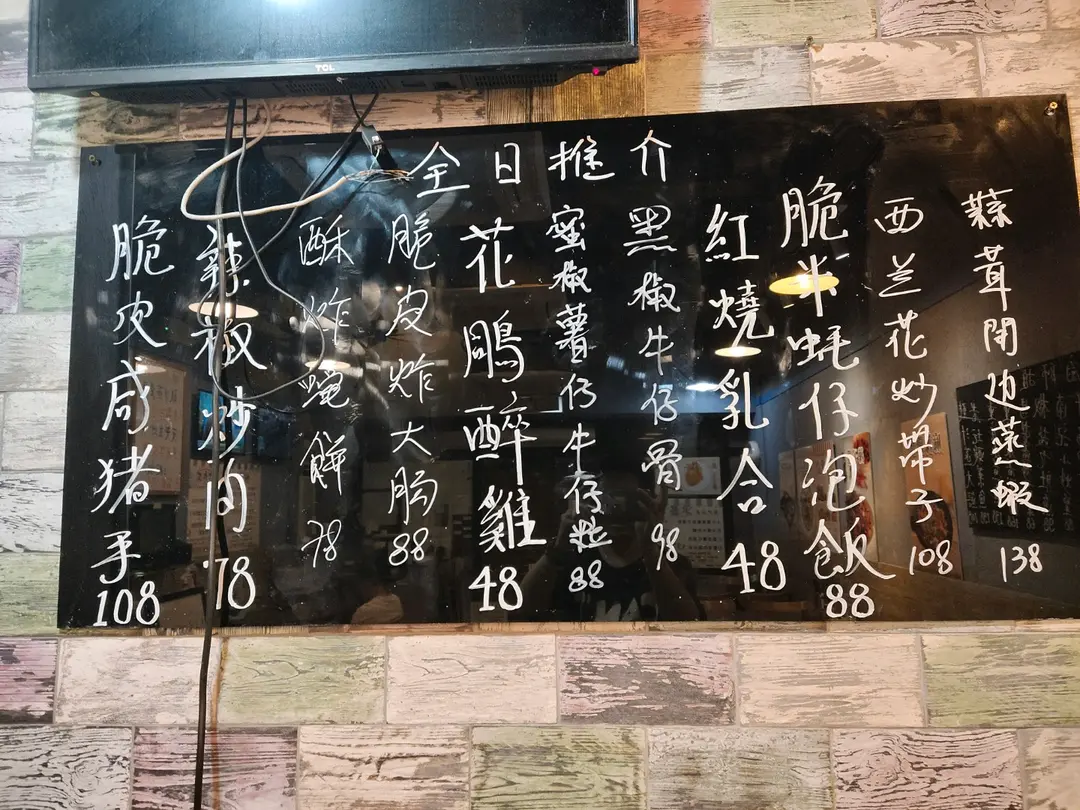 TCL
全日推介
蒜茸開边蒸蝦 138
西兰花炒帶子 108
脆米蚝仔泡飯 88
紅燒乳合 48
黑椒牛仔骨 98
蜜椒薯仔牛仔粒 88
花鵰醉雞 48
脆皮炸大腸 88
酥炸蠔餅 78
辣椒炒肉 78
脆皮咸猪手 108